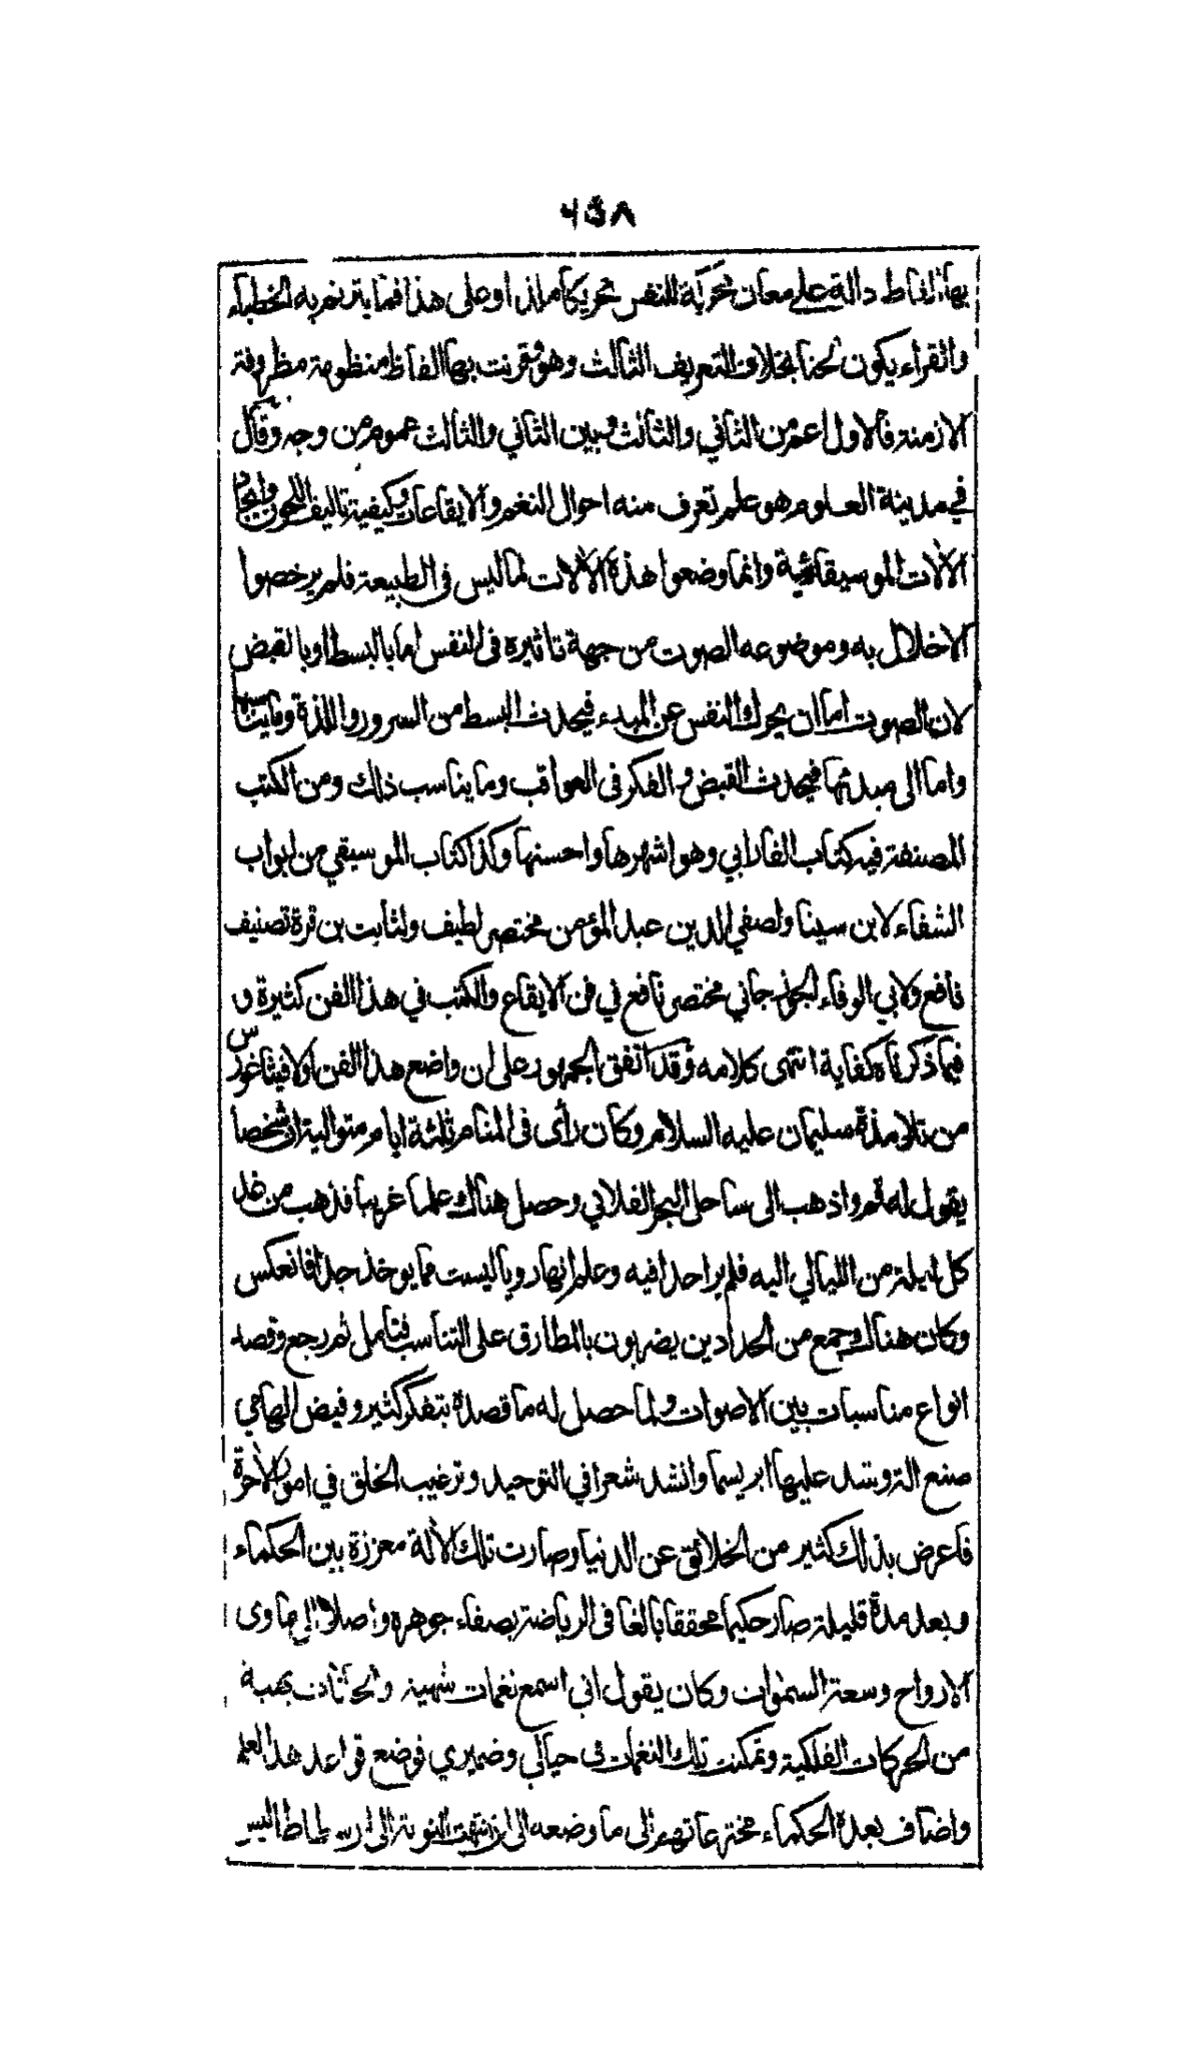 ٦٥٨
بها الفاظ دالة على معان محركة للنفس تحريكا ملذا وعلى هذا فما يترنم به الخطباء
والقراء يكون لحنا بخلاف التعريف الثالث وهو قرنت بها الفاظ منظومة مظروفة
الازمنة فالاول اعم من الثاني والثالث وبين الثاني والثالث عموم من وجه وقال
في مدينة العلوم هو علم تعرف منه احوال النغم والايقاعات وكيفية تاليف اللحون وايجاد
الآلات الموسيقائية وانما وضعوا هذه الآلات لما ليس في الطبيعة فلم يرخصوا
الاخلال به وموضوعه الصوت من جهة تاثيره في النفس اما بالبسط او بالقبض
لان الصوت اما ان يحرك النفس عن المبدء فيحدث البسط من السرور واللذة وما يناسبها
واما الى مبدئها فيحدث القبض والفكر في العواقب وما يناسب ذلك ومن الكتب
المصنفة فيه كتاب الفارابي وهو اشهرها واحسنها وكذا كتاب الموسيقي من ابواب
الشفاء لابن سينا ولصفي الدين عبد المؤمن مختصر لطيف ولثابت بن قرة تصنيف
نافع ولابي الوفاء الجوزجاني مختصر نافع في فن الايقاع والكتب في هذا الفن كثيرة و
فيما ذكرناه كفاية انتهى كلامه وقد اتفق الجمهور على ان واضع هذا الفن اولا فيثاغورس
من تلامذة سليمان عليه السلام وكان رأى في المنام ثلثة ايام متوالية ان شخصا
يقول له قم واذهب الى ساحل البحر الفلاني وحصل هناك علما غريبا فذهب من غد
كل ليلة من الليالي اليه فلم ير احدا فيه وعلم انها رويا ليست مما يوخذ جدا فانعكس
وكان هناك جمع من الحدادين يضربون بالمطارق على التناسب فتامل ثم رجع وقصد
انواع مناسبات بين الاصوات ولما حصل له ما قصده بتفكر كثير وفيض الهامي
صنع آلة وشد عليها ابريسما وانشد شعرا في التوحيد وترغيب الخلق في امور الآخرة
فاعرض بذلك كثير من الخلائق عن الدنيا وصارت تلك الآلة معززة بين الحكماء
وبعد مدة قليلة صار حكيما محققا بالغا في الرياضة بصفاء جوهره واصلا الى ماوى
الارواح وسعة السموات وكان يقول اني اسمع نغمات شهية والحانات بهية
من الحركات الفلكية وتمكنت تلك النغمات في خيالي وضميري فوضع قواعد هذا العلم
واضاف بعده الحكماء مخترعاتهم الى ما وضعه الى ان انتهت النوبة الى ارسطاطاليس